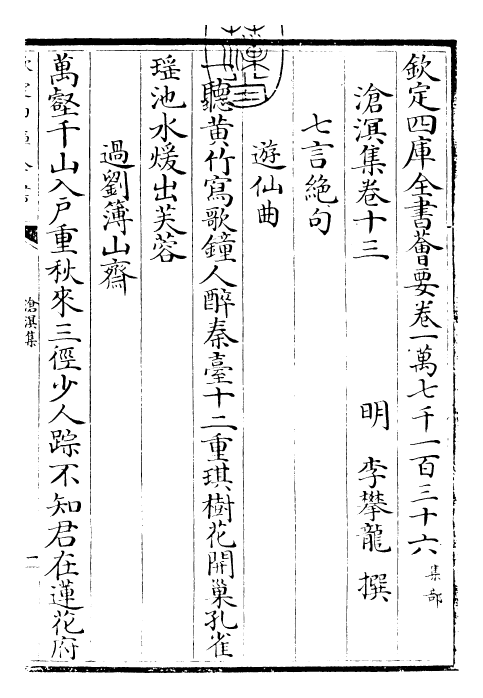 欽定四庫全書薈要卷一萬七千一百三十六 集部
滄溟集卷十三 明 李攀龍 撰
七言絶句
遊仙曲
一聽黄竹寫歌鐘人醉秦臺十二重琪樹花開巢孔雀
瑶池水煖出芙蓉
過劉簿山齋
萬壑千山入户重秋來三徑少人踪不知君在蓮花府
滄溟集
一